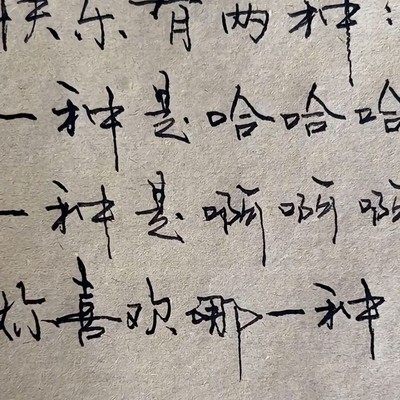 快乐有两种：
一种是哈哈哈
一种是啊啊啊
你喜欢哪一种